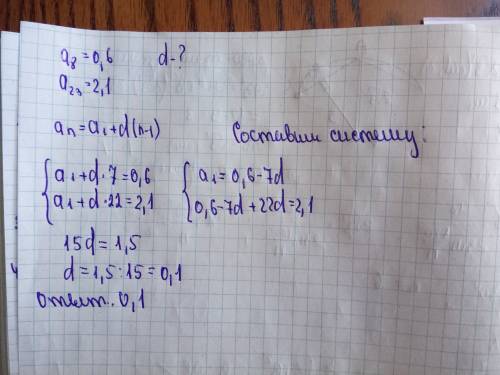 a₈=0,6 d-?
a₂₃=2,1
aₙ=a₁+d(n-1) Составим систему:
{a₁+d·7=0,6 {a₁=0,6-7d
{a₁+d·22=2,1 {0,6-7d+22d=2,1
15d=1,5
d=1,5:15=0,1
Ответ. 0,1